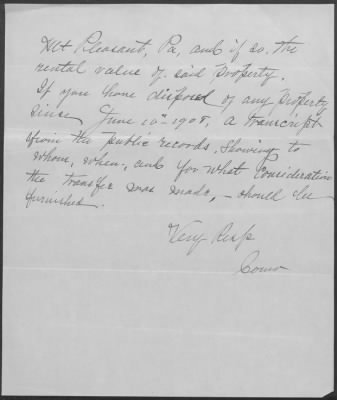 Mt Pleasant, Pa, and if so. the
rental value of said Property.
If you have disposed of any Property
since June 10th 1908, a transcript
from the public records, showing to
whom, when, and for what consideration
the transfer was made, – should be
furnished.
Very Resp
Comr